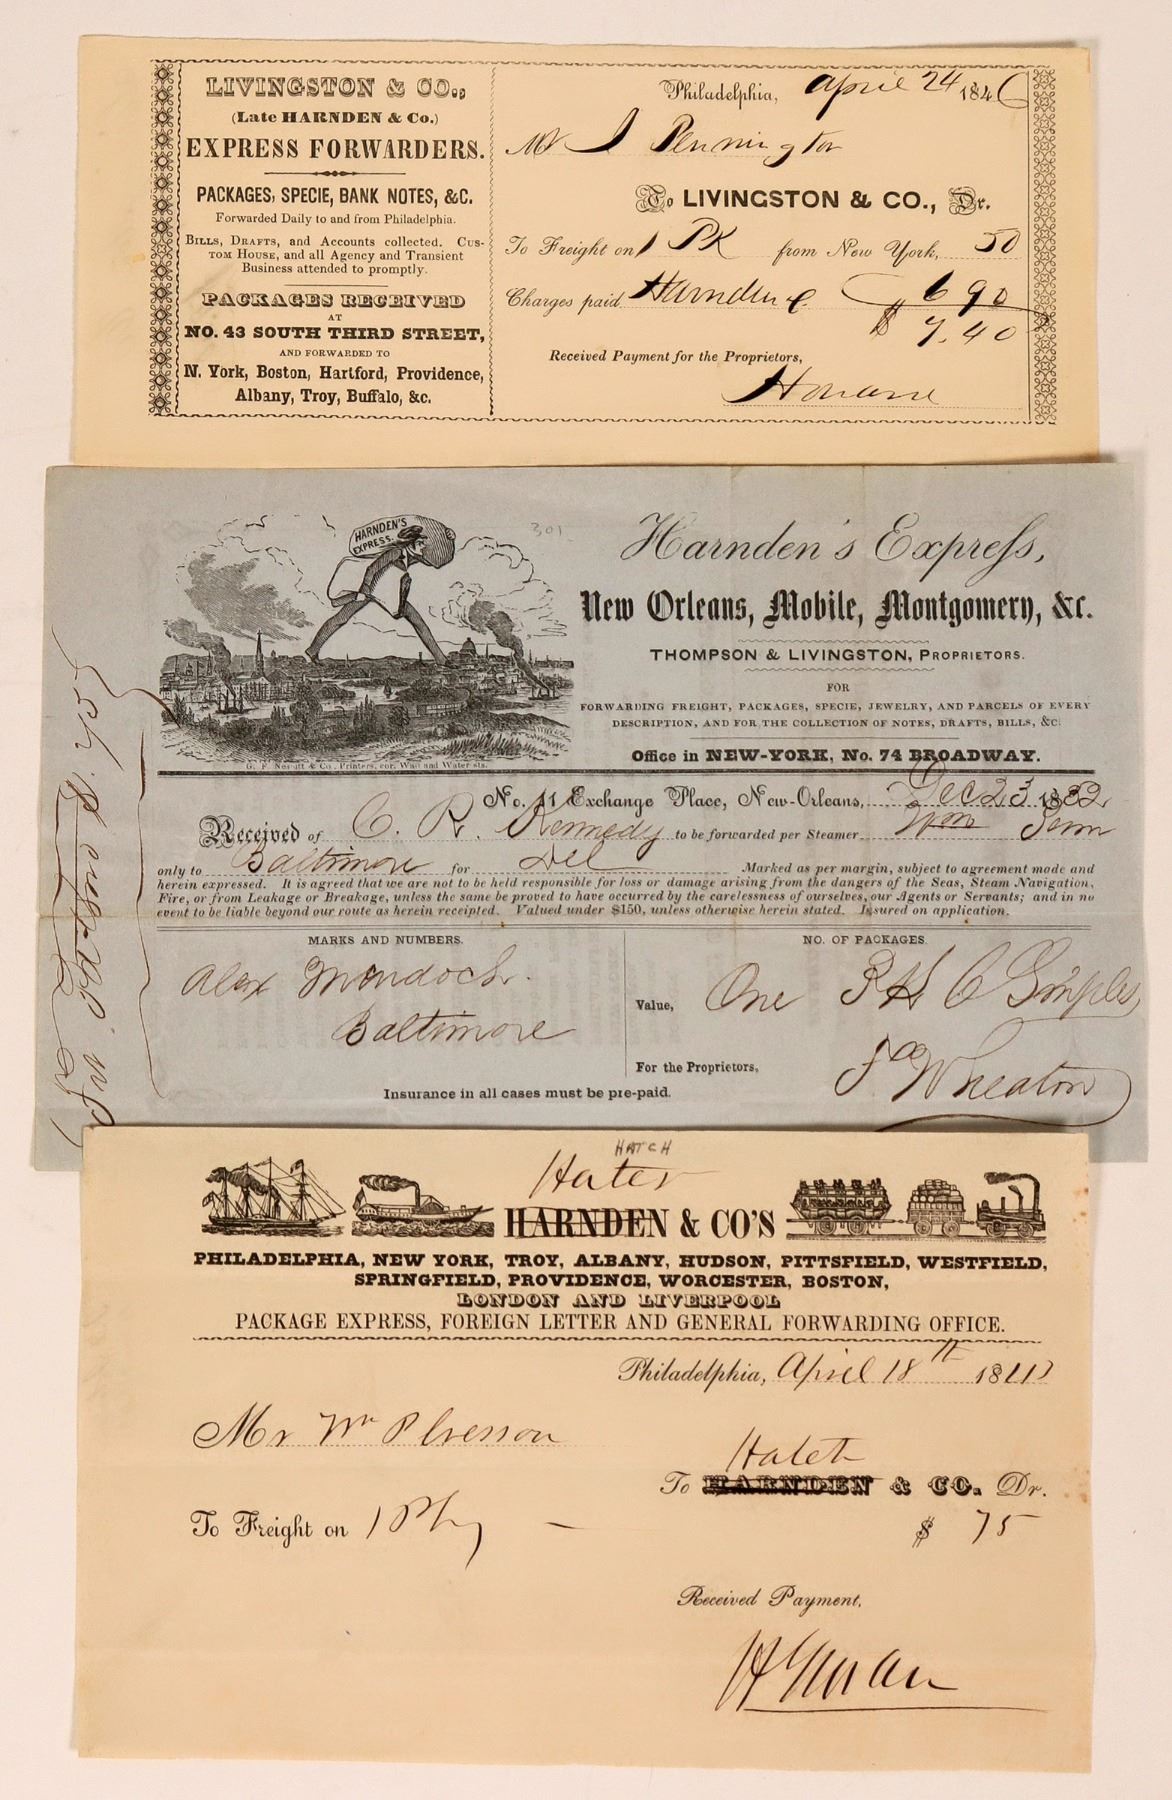 LIVINGSTON & CO.,
(Late HARNDEN & Co.)
EXPRESS FORWARDERS.
PACKAGES, SPECIE, BANK NOTES, &C.
Forwarded Daily to and from Philadelphia.
BILLS, DRAFTS, and Accounts collected. CUS-
TOM HOUSE, and all Agency and Transient
Business attended to promptly.
PACKAGES RECEIVED
AT
NO. 43 SOUTH THIRD STREET,
AND FORWARDED TO
N. York, Boston, Hartford, Providence,
Albany, Troy, Buffalo, &c.
Philadelphia, April 24 1846
Mr I Pennington
To LIVINGSTON & CO., Dr.
To Freight on 1 PK from New York, 50
Charges paid Harnden C. 6 90
$ 7.40
Received Payment for the Proprietors,
HARNDEN'S
EXPRESS.
301
G. F. Nesbitt & Co. Printers, cor. Wall and Water sts.
Harnden's Express,
New Orleans, Mobile, Montgomery, &c.
THOMPSON & LIVINGSTON, PROPRIETORS.
FOR
FORWARDING FREIGHT, PACKAGES, SPECIE, JEWELRY, AND PARCELS OF EVERY
DESCRIPTION, AND FOR THE COLLECTION OF NOTES, DRAFTS, BILLS, &C.
Office in NEW-YORK, No. 74 BROADWAY.
No. 11 Exchange Place, New-Orleans, Dec 23 1852
Received of C. R. Kennedy to be forwarded per Steamer Wm Penn
only to Baltimore for Del Marked as per margin, subject to agreement made and
herein expressed. It is agreed that we are not to be held responsible for loss or damage arising from the dangers of the Seas, Steam Navigation,
Fire, or from Leakage or Breakage, unless the same be proved to have occurred by the carelessness of ourselves, our Agents or Servants; and in no
event to be liable beyond our route as herein receipted. Valued under $150, unless otherwise herein stated. Insured on application.
MARKS AND NUMBERS.
NO. OF PACKAGES.
Alex Murdoch.
Baltimore
Value, One Pkg Samples
For the Proprietors,
J Wheaton
Insurance in all cases must be pre-paid.
HATCH
Hatch
HARNDEN & CO'S
PHILADELPHIA, NEW YORK, TROY, ALBANY, HUDSON, PITTSFIELD, WESTFIELD,
SPRINGFIELD, PROVIDENCE, WORCESTER, BOSTON,
LONDON AND LIVERPOOL
PACKAGE EXPRESS, FOREIGN LETTER AND GENERAL FORWARDING OFFICE.
Philadelphia, April 18th 184
Mr Wm
Hatch
To HARNDEN & CO. Dr.
To Freight on 1 Pkg $ 75
Received Payment,